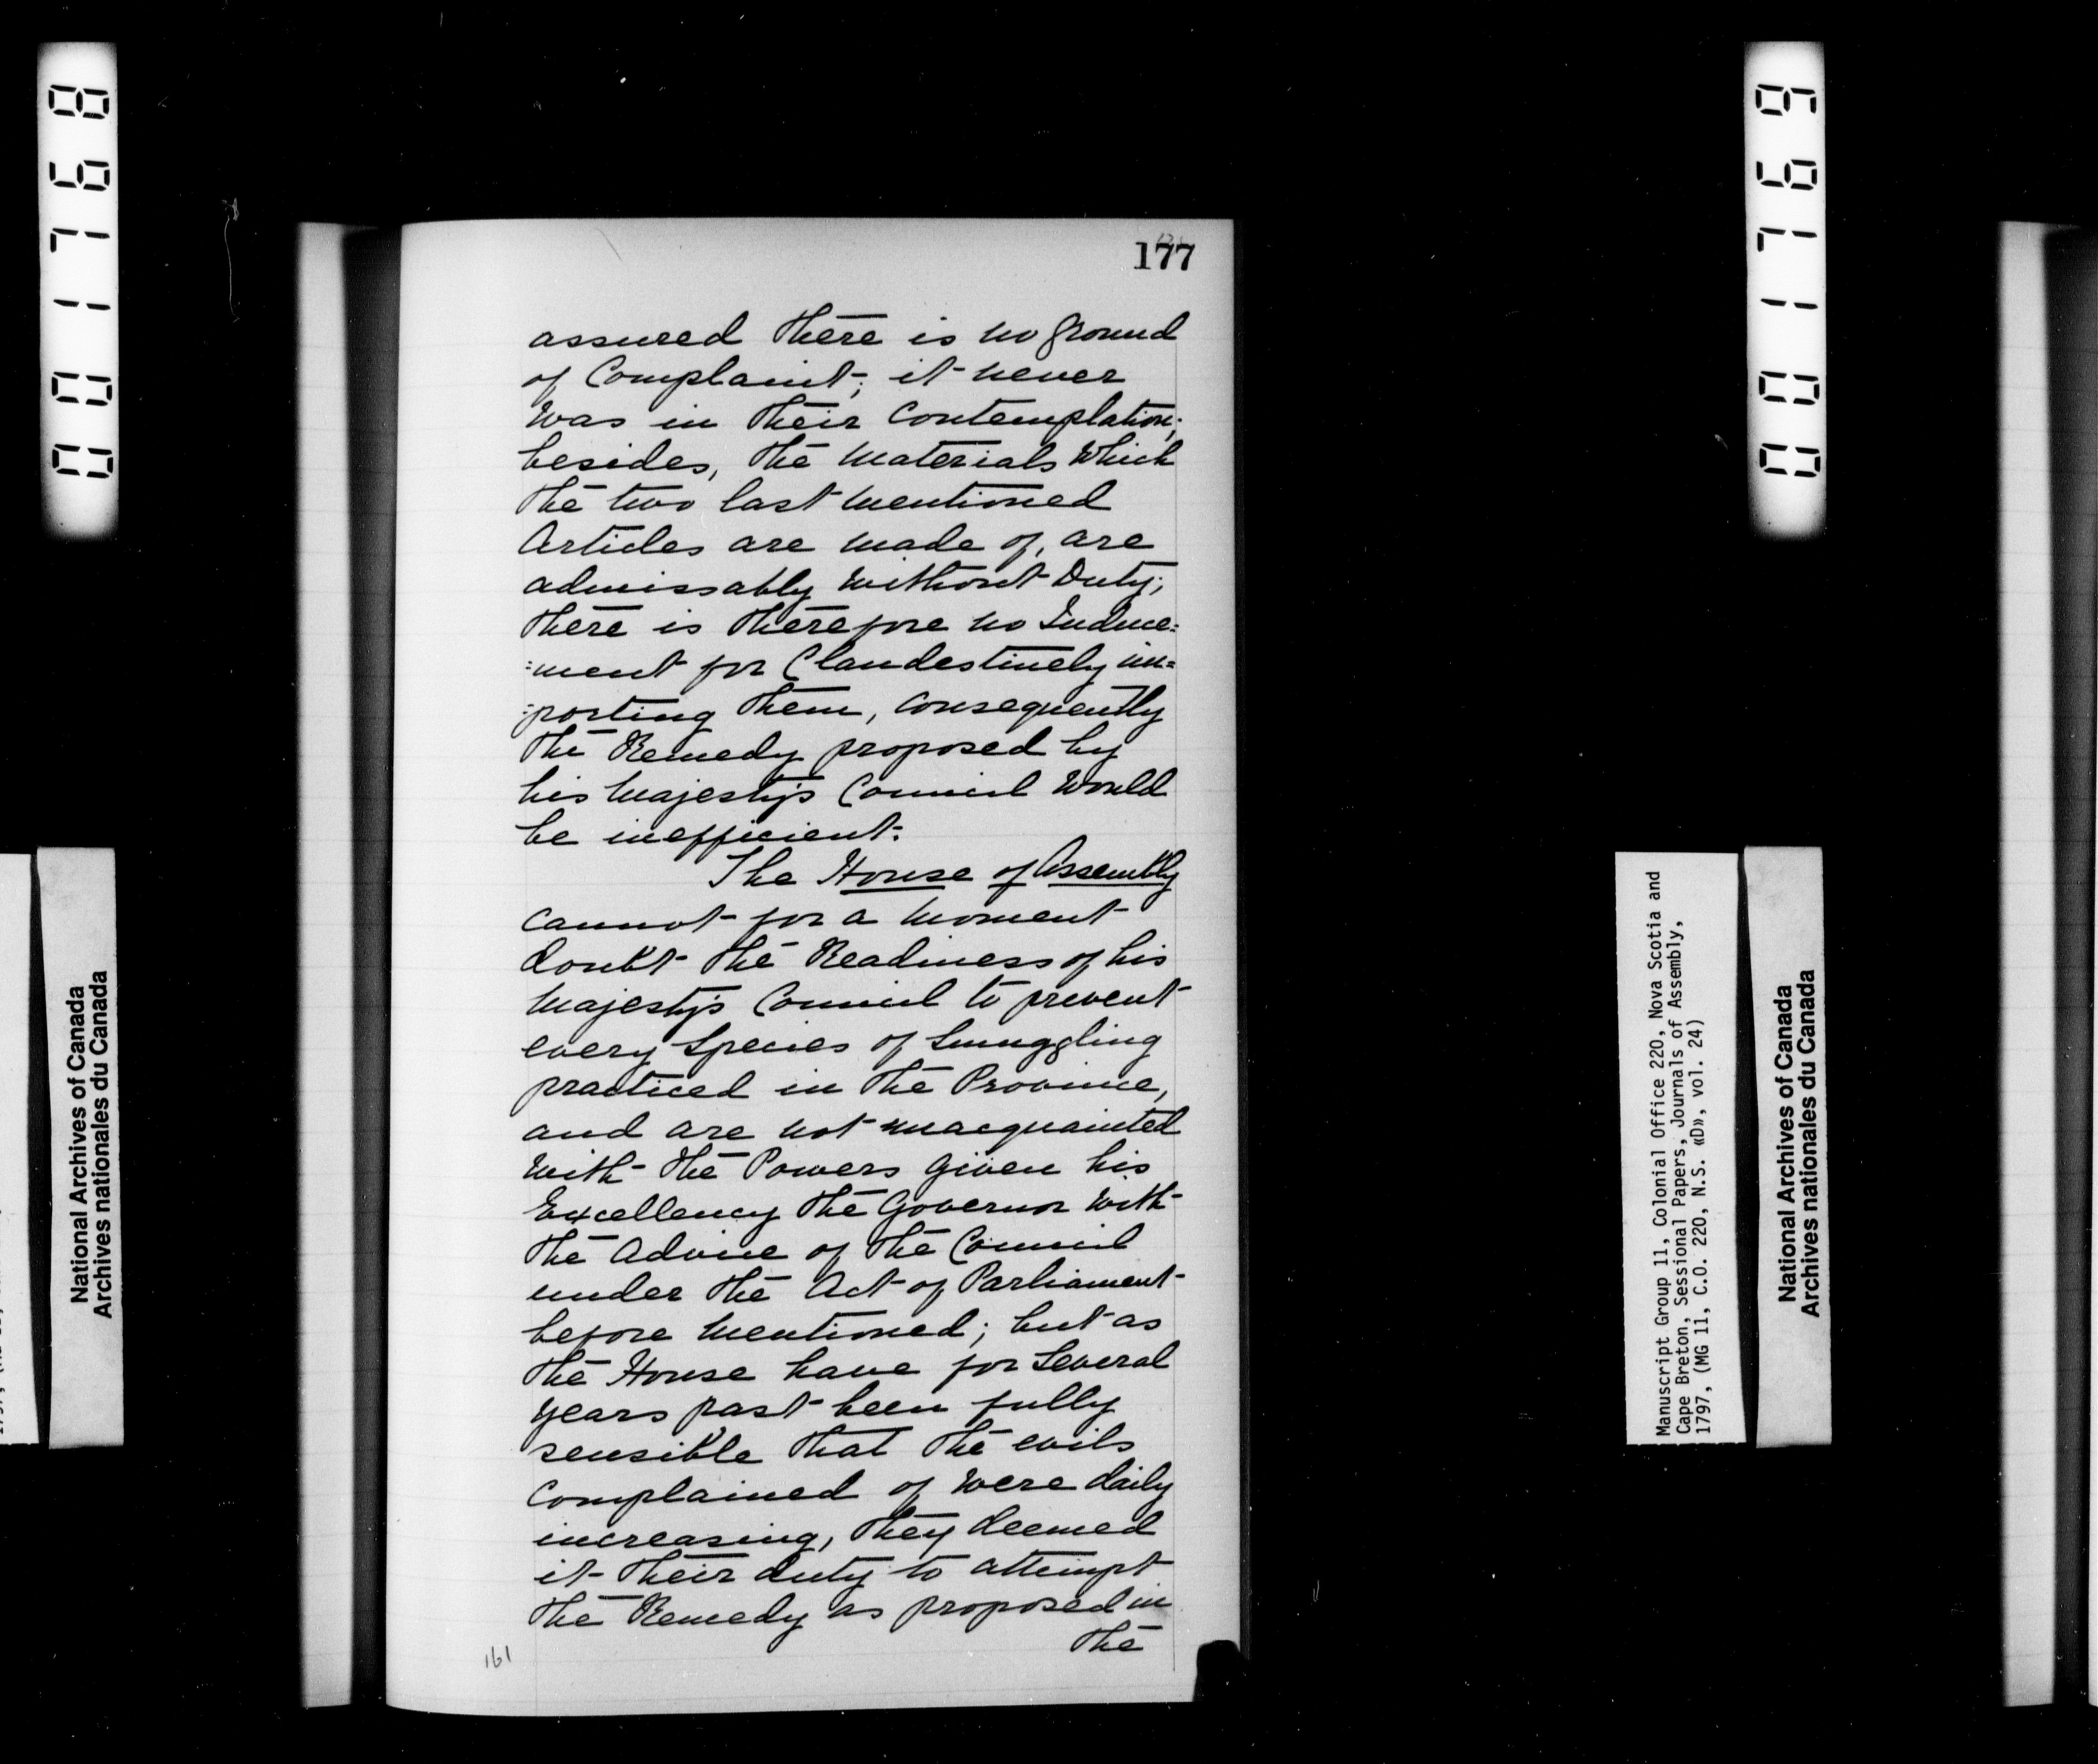 001768
001769
177
assured there is no ground
of Complaint; it never
was in their Contemplation;
besides, the materials which
the two last mentioned
Articles are made of, are
admissably without Duty;
there is therefore no Induce=
=ment for Clandestinely im=
=porting them, consequently
the Remedy proposed by
his Majesty's Council would
be inefficient.
The House of Assembly
cannot for a moment
doubt the Readiness of his
Majesty's Council to prevent
every Species of Smuggling
practiced in the Province,
and are not unacquainted
with the Powers given his
Excellency the Governor with
the Advice of the Council
under the Act of Parliament
before mentioned; but as
the House have for Several
years past been fully
sensible that the evils
complained of were daily
increasing, they deemed
it their duty to attempt
the Remedy as proposed in
the
161
National Archives of Canada
Archives nationales du Canada
Manuscript Group 11, Colonial Office 220, Nova Scotia and
Cape Breton, Sessional Papers, Journals of Assembly,
1797, (MG 11, C.O. 220, N.S. «D», vol. 24)
National Archives of Canada
Archives nationales du Canada